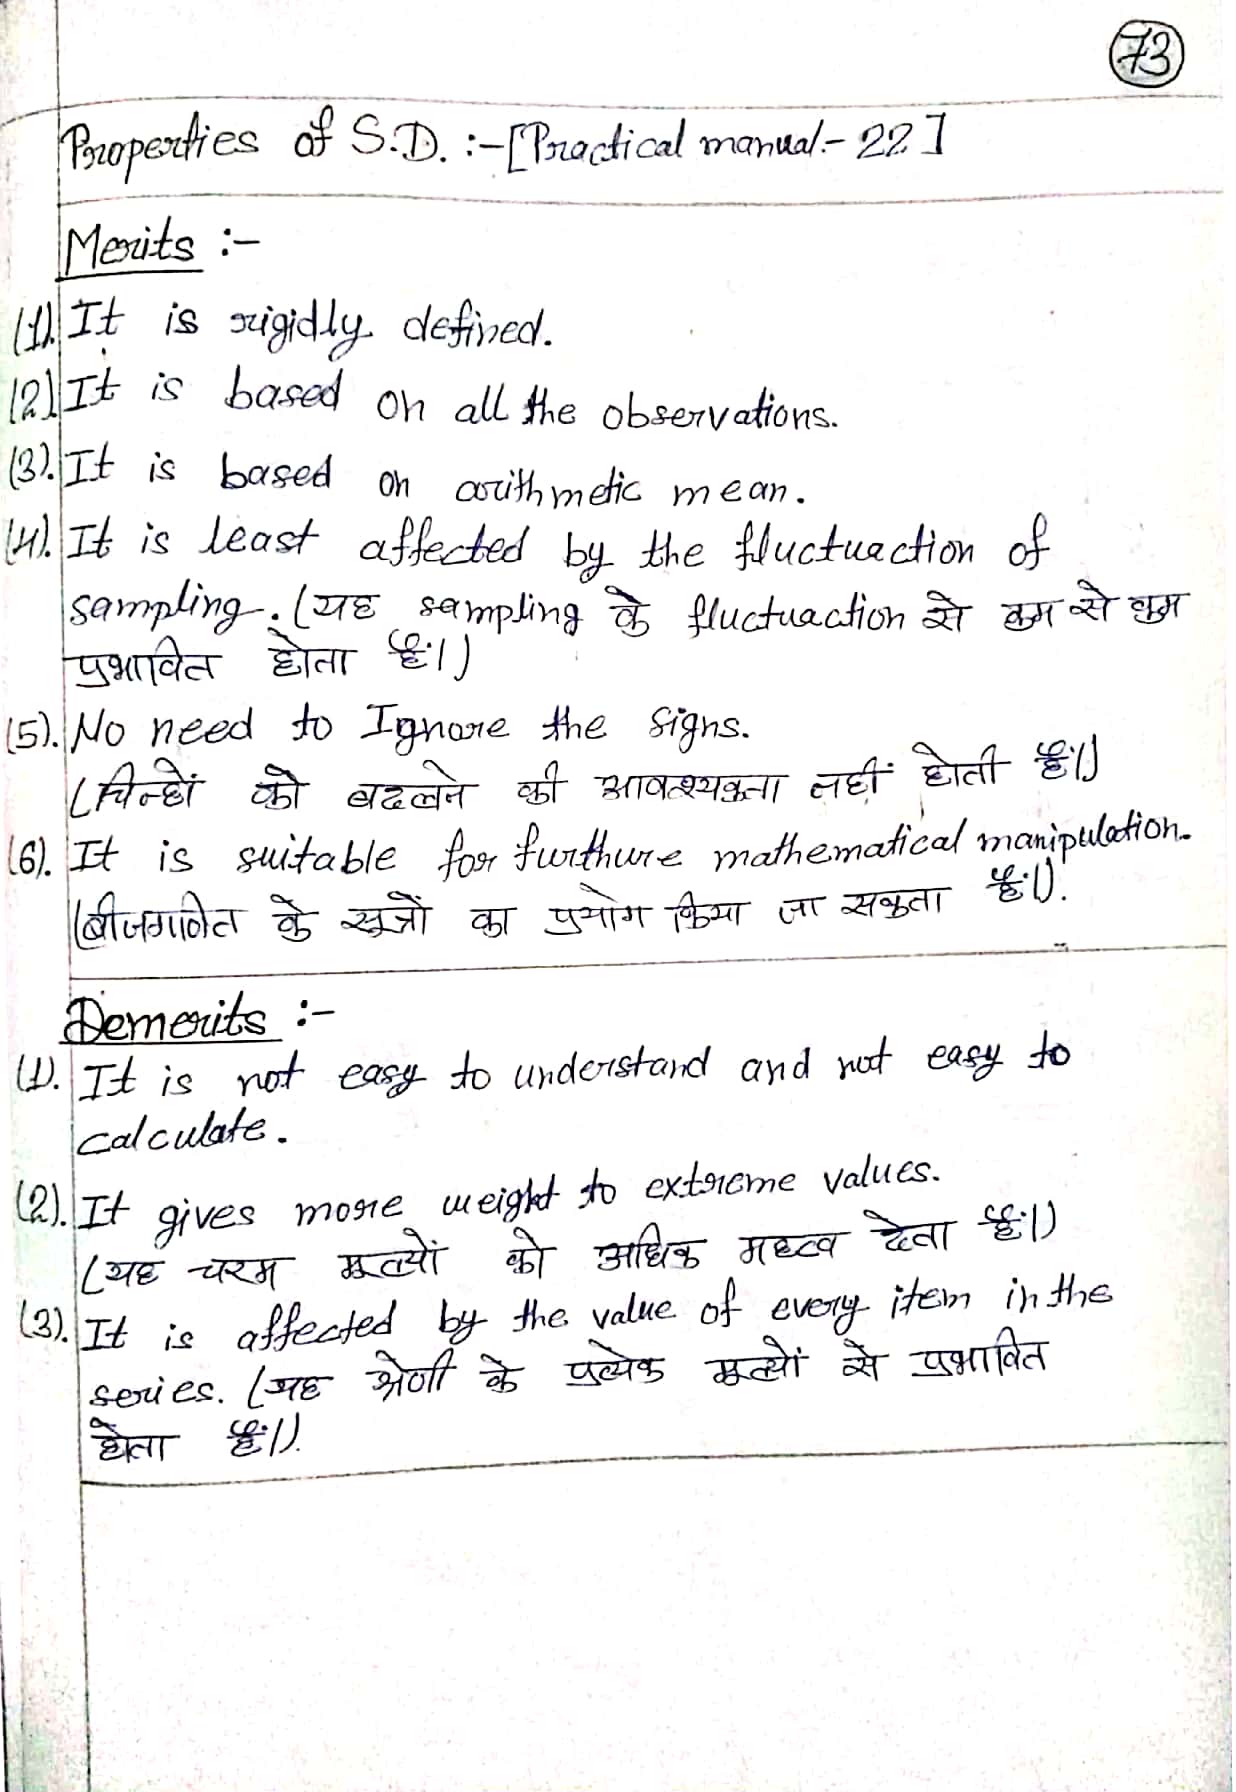 73
Properties of S.D. :-[Practical manual.- 22]
Merits :-
(1). It is rigidly defined.
(2) It is based on all the observations.
(3). It is based on arithmetic mean.
(4). It is least affected by the fluctuaction of
sampling. (यह sampling के fluctuaction से कम से कम
प्रभावित होता हैं।)
(5). No need to Ignore the signs.
(चिन्हों को बदलने की आवश्यकता नहीं होती हैं।)
(6). It is suitable for furthure mathematical manipulation.
(बीजगणित के सूत्रों का प्रयोग किया जा सकता हैं।).
Demerits :-
(1). It is not easy to understand and not easy to
calculate.
(2). It gives more weight to extreme values.
(यह चरम मूल्यों को अधिक महत्व देता हैं।)
(3). It is affected by the value of every item in the
series. (यह श्रेणी के प्रत्येक मूल्यों से प्रभावित
होता हैं।).